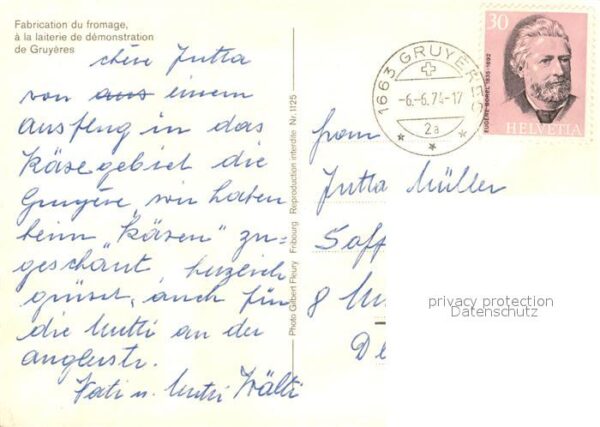 Fabrication du fromage,
à la laiterie de démonstration
de Gruyères
chère Jutta
von aus einem
ausflug in das
Käsegebiet die
Gruyère, wir haben
beim "Käsen" zu-
geschaut, herzlich
grüsst, auch für
die Mutti an der
anglerstr.
Vati u. Mutti Wälti
Photo Gilbert Fleury Fribourg Reproduction interdite Nr. 1125
1663 GRUYÈRES
-6.-6.74-17
2a
30
EUGÈNE BOREL 1835-1892
HELVETIA
Jutta Müller
8
privacy protection
Datenschutz